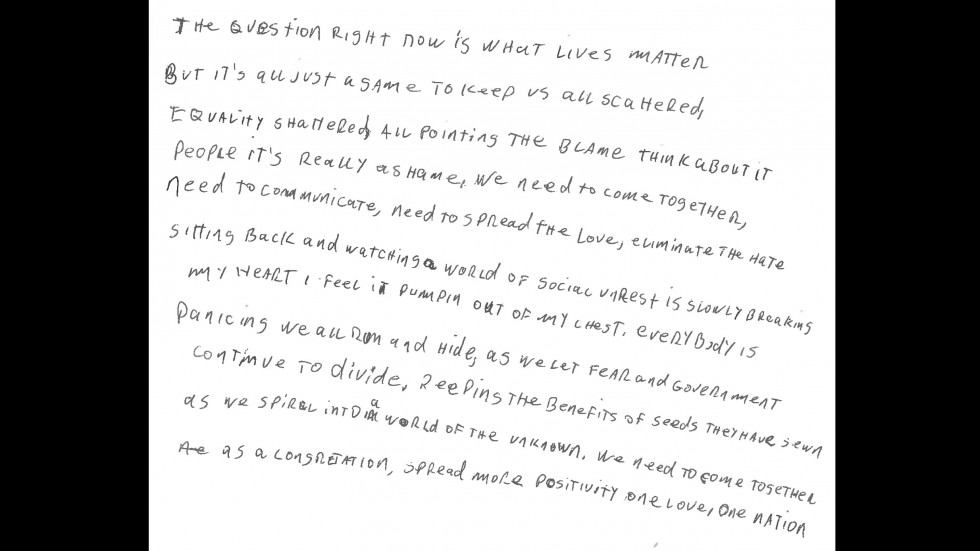 THE QUESTION RIGHT NOW IS WHAT LIVES MATTER
BUT IT'S ALL JUST A GAME TO KEEP US ALL SCATTERED,
EQUALITY SHATTERED, ALL POINTING THE BLAME THINK ABOUT IT
PEOPLE IT'S REALLY A SHAME, WE NEED TO COME TOGETHER,
NEED TO COMMUNICATE, NEED TO SPREAD THE LOVE, ELIMINATE THE HATE
SITTING BACK AND WATCHING A WORLD OF SOCIAL UNREST IS SLOWLY BREAKING
MY HEART I FEEL IT PUMPIN OUT OF MY CHEST. EVERYBODY IS
PANICING WE ALL RUN AND HIDE, AS WE LET FEAR AND GOVERNMENT
CONTINUE TO DIVIDE, REEPING THE BENEFITS OF SEEDS THEY HAVE SEWN
AS WE SPIREL INTO A WORLD OF THE UNKNOWN. WE NEED TO COME TOGETHER
AS A CONGRETATION, SPREAD MORE POSITIVITY ONE LOVE, ONE NATION